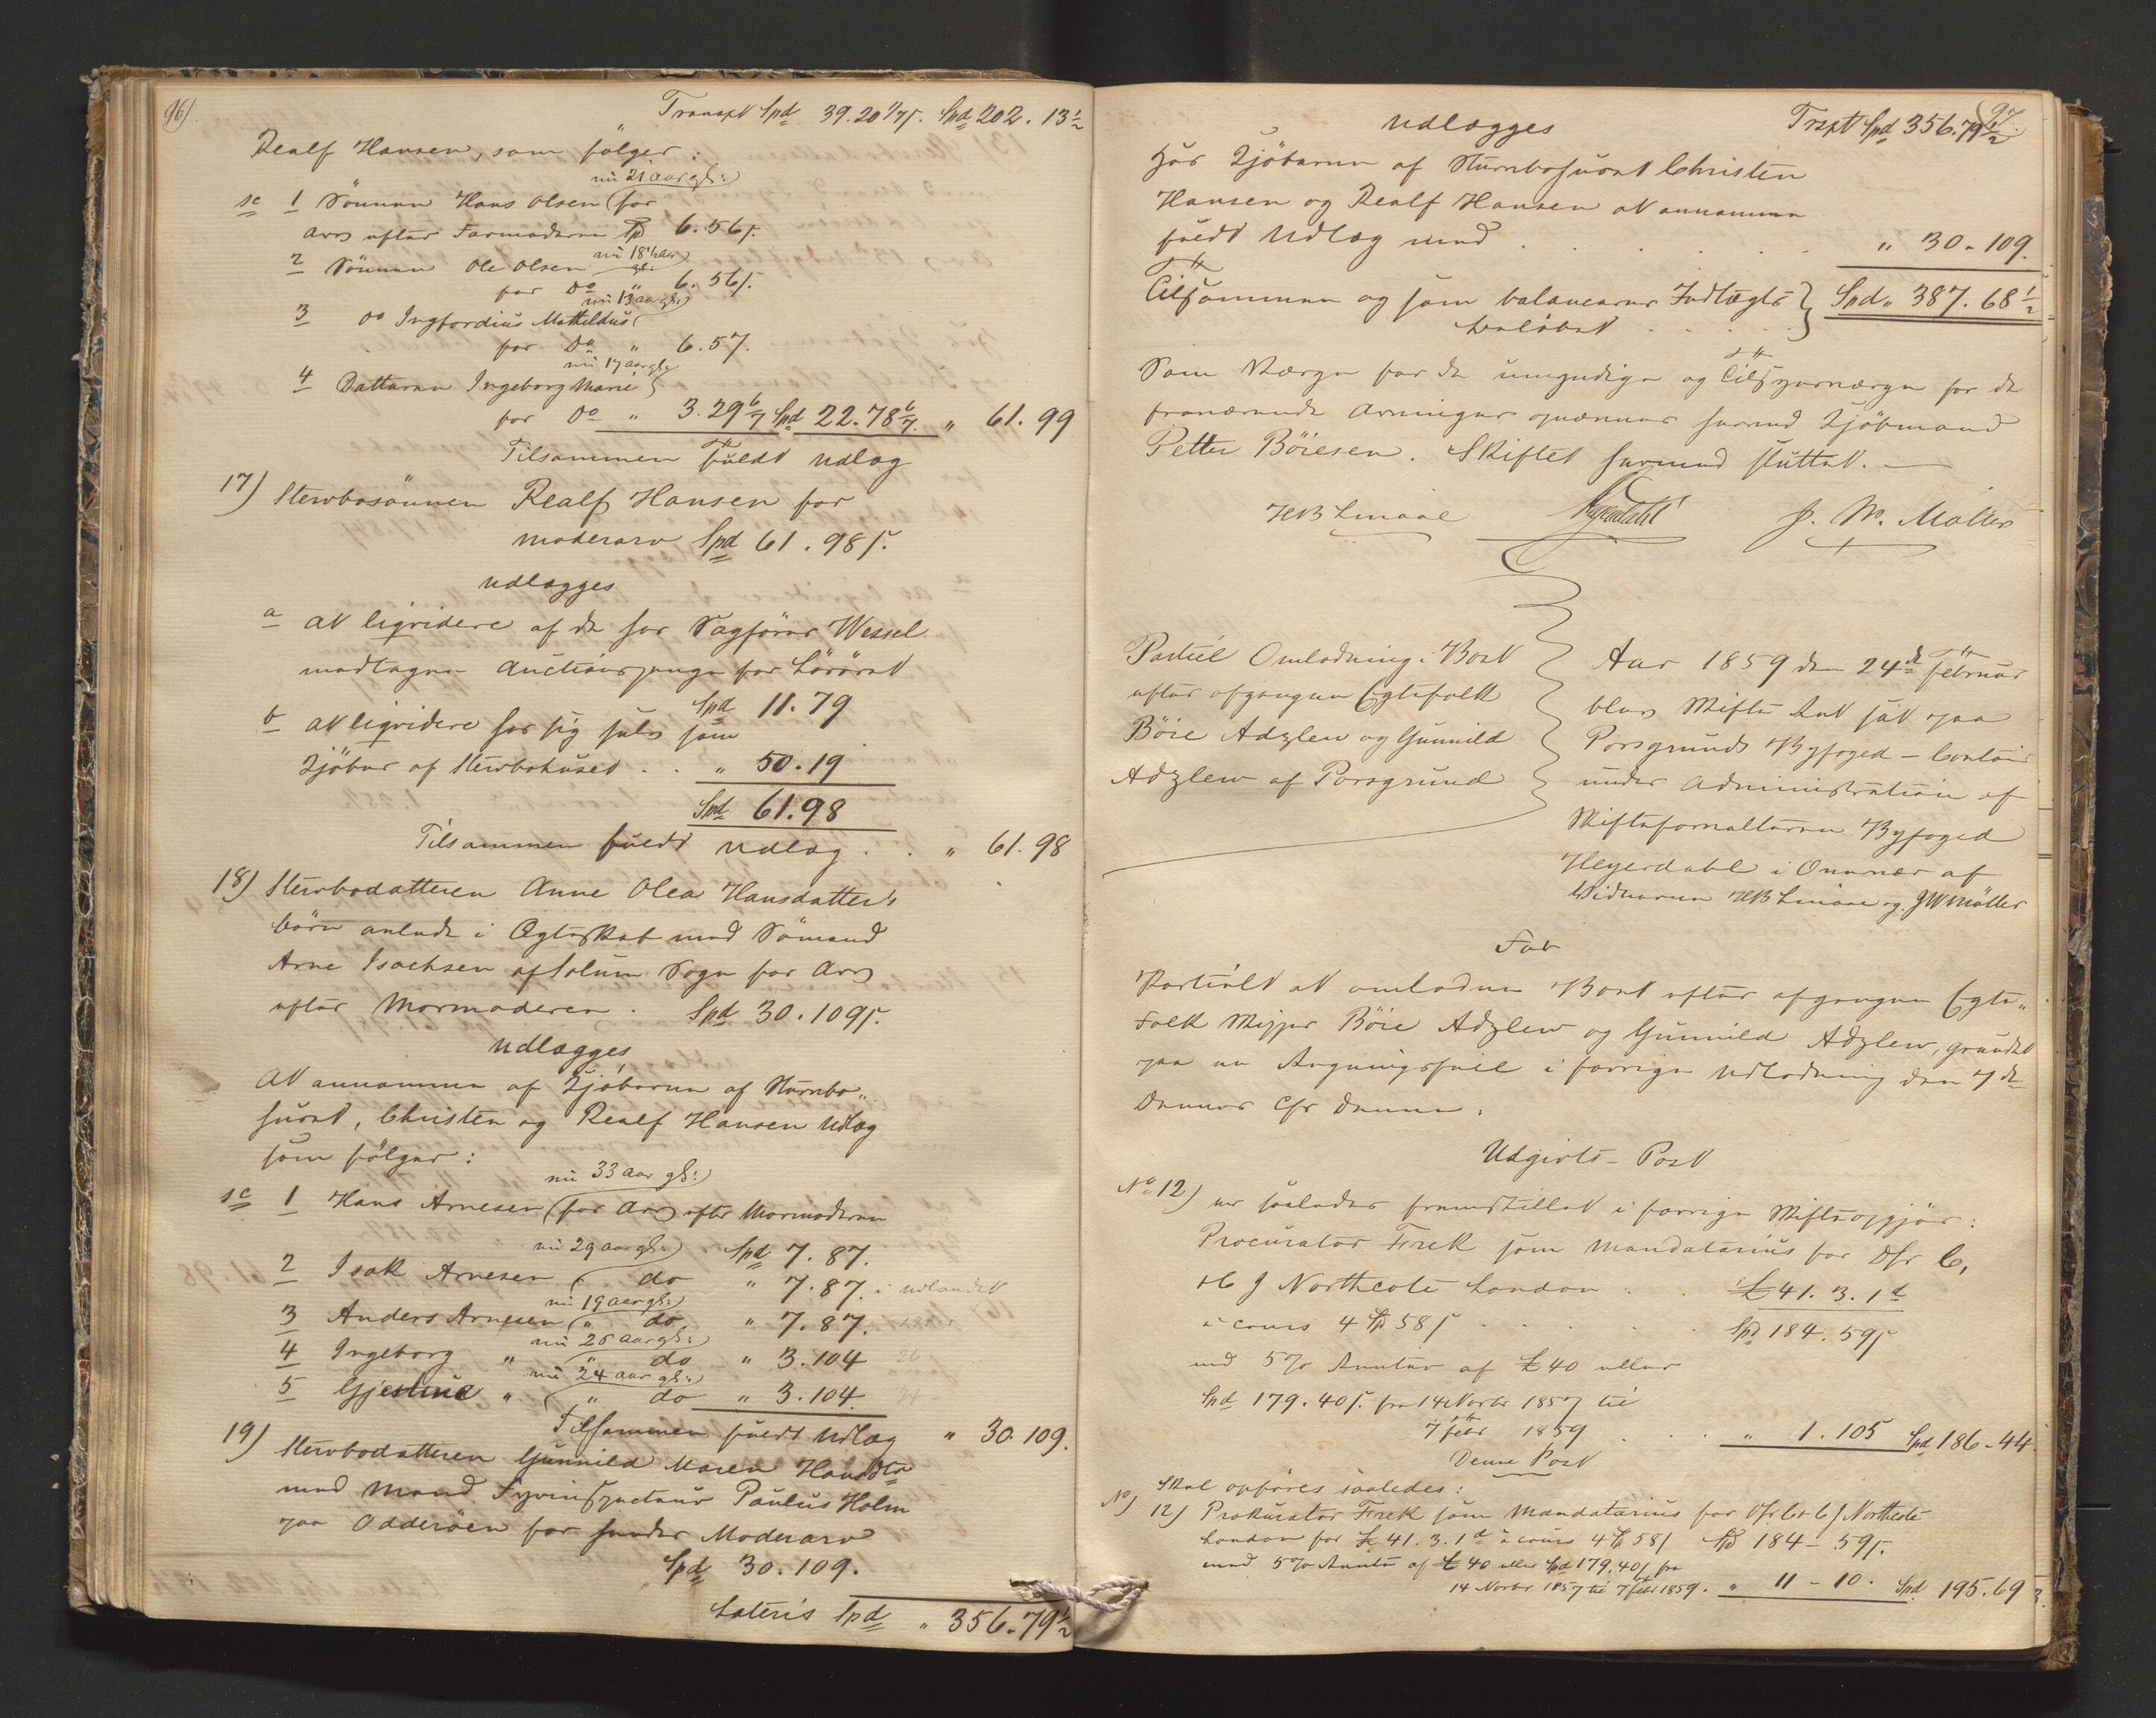 96).
Transpt Spd 39.20 1/7 s. Spd 202. 13 1/2
Realf Hansen, som følger:
nu 21 aar gl:)
sc 1 Sønnen Hans Olsen (for
Arv efter Farmoderen Sp 6.56 s.
nu 18 1/2 aar gl:)
2 Sønnen Ole Olsen
for Do " 6.56 s.
nu 13 aar gl:)
3 do Ingfordius Mathildus (
for Do " 6.57.
nu 17 aar gl:
4 Datteren Ingeborg Marie )
for Do " 3.29 6/7 Spd 22.78 6/7. " 61.99
Tilsammen fuldt Udlæg
17) Stervbosønnen Realf Hansen for
Moderarv Spd 61. 98 s.
Udlægges
a At liqvidere af de hos Sagfører Wessel
modtagne Auctionspenge for Løsøret
Spd 11.79
b At liqvidere hos sig selv som
Kjøber af Stervbohuset . . " 50.19
Spd 61.98
Tilsammen fuldt Udlæg . . " 61.98
18) Stervbodatteren Anne Olea Hansdatter's
Børn avlede i Ægteskab med Sømand
Arne Isachsen af Solum Sogn for Arv
efter Mormoderen . Spd 30.109 s.
Udlægges
At annamme af Kjøberne af Stervbo„
huset, Christen og Realf Hansen Udlæg
som følger:
nu 33 aar gl:)
sc 1 Hans Arnesen (for Arv efter Mormoderen
Spd 7.87.
nu 29 aar gl:)
2 Isak Arnesen ( do " 7.87. i Udlandet
nu 19 aar gl:)
3 Anders Arnesen ( " do " 7.87.
nu 26 aar gl:)
4 Ingeborg " " do " 3.104 26
nu 24 aar gl:)
5 Gjestine " ( " do " 3.104. 24
Tilsammen fuldt Udlæg " 30.109.
19) Stervbodatteren Gunnild Maren Hansdtr
med Mand Fyrinspecteur Paulus Holm
paa Odderøen for hendes Moderarv
Spd 30.109.
Lateris Spd " 356.79 1/2
97.
Trspt Spd 356.79 1/2
Udlægges
hos Kjøberne af Stervbohuset Christen
Hansen og Realf Hansen at annamme
fuldt Udlæg med . . . . " 30.109.
Tilsammen og som balancerer Indtægts } Spd " 387.68 1/2
beløbet . . . . .
Som Værge for de umyndige og Tilsynsværge for de
fraværende Arvinger opnævnes herved Kjøbmand
Petter Böiesen. Skiftet hermed sluttet. —
HB Linaae Heyerdahl J. W. Møller
Partiel Omlodning i Boet
efter afgangne Egtefolk
Böie Adzlew og Gunnild
Adzlew af Porsgrund
Aar 1859 den 24de Februar
blev Skifte Ret sat paa
Porsgrunds Byfoged-Contoir
under Administration af
Skifteforvalteren Byfoged
Heyerdahl i Overvær af
Vidnerne HB Linaae og JW Møller
For
Partielt at omlodne Boet efter afgangne Egte„
folk Skipper Böie Adzlew og Gunnild Adzlew, grundet
paa en Regningsfeil i forrige Udlodning den 7de
Dennes Cfr Denne.
Udgivts-Post
No 12) er saaledes fremstillet i forrige Skifteopgjør:
Procurator Frek som Mandatarius for Dhr C,
& C J Northcote London . . £ 41.3.1d
à cours 4 Sp 58 s . . . . . Spd 184.59 s
med 5% Renter af £ 40 eller
Spd 179.40 s. fra 14 Novbr 1857 til
7 Febr 1859 . . . " 1.105 Spd 186-44.
Denne Post
skal opføres saaledes:
No 12) Prokurator Frek som Mandatarius for Dhr C & C J Northcote
London for £ 41.3.1d à cours 4 Sp 58 s Sp 184-59 s.
med 5% Rente af £ 40 eller Spd 179.40 s fra
14 Novbr 1857 til 7 Febr 1859. " 11-10. Spd 195.69